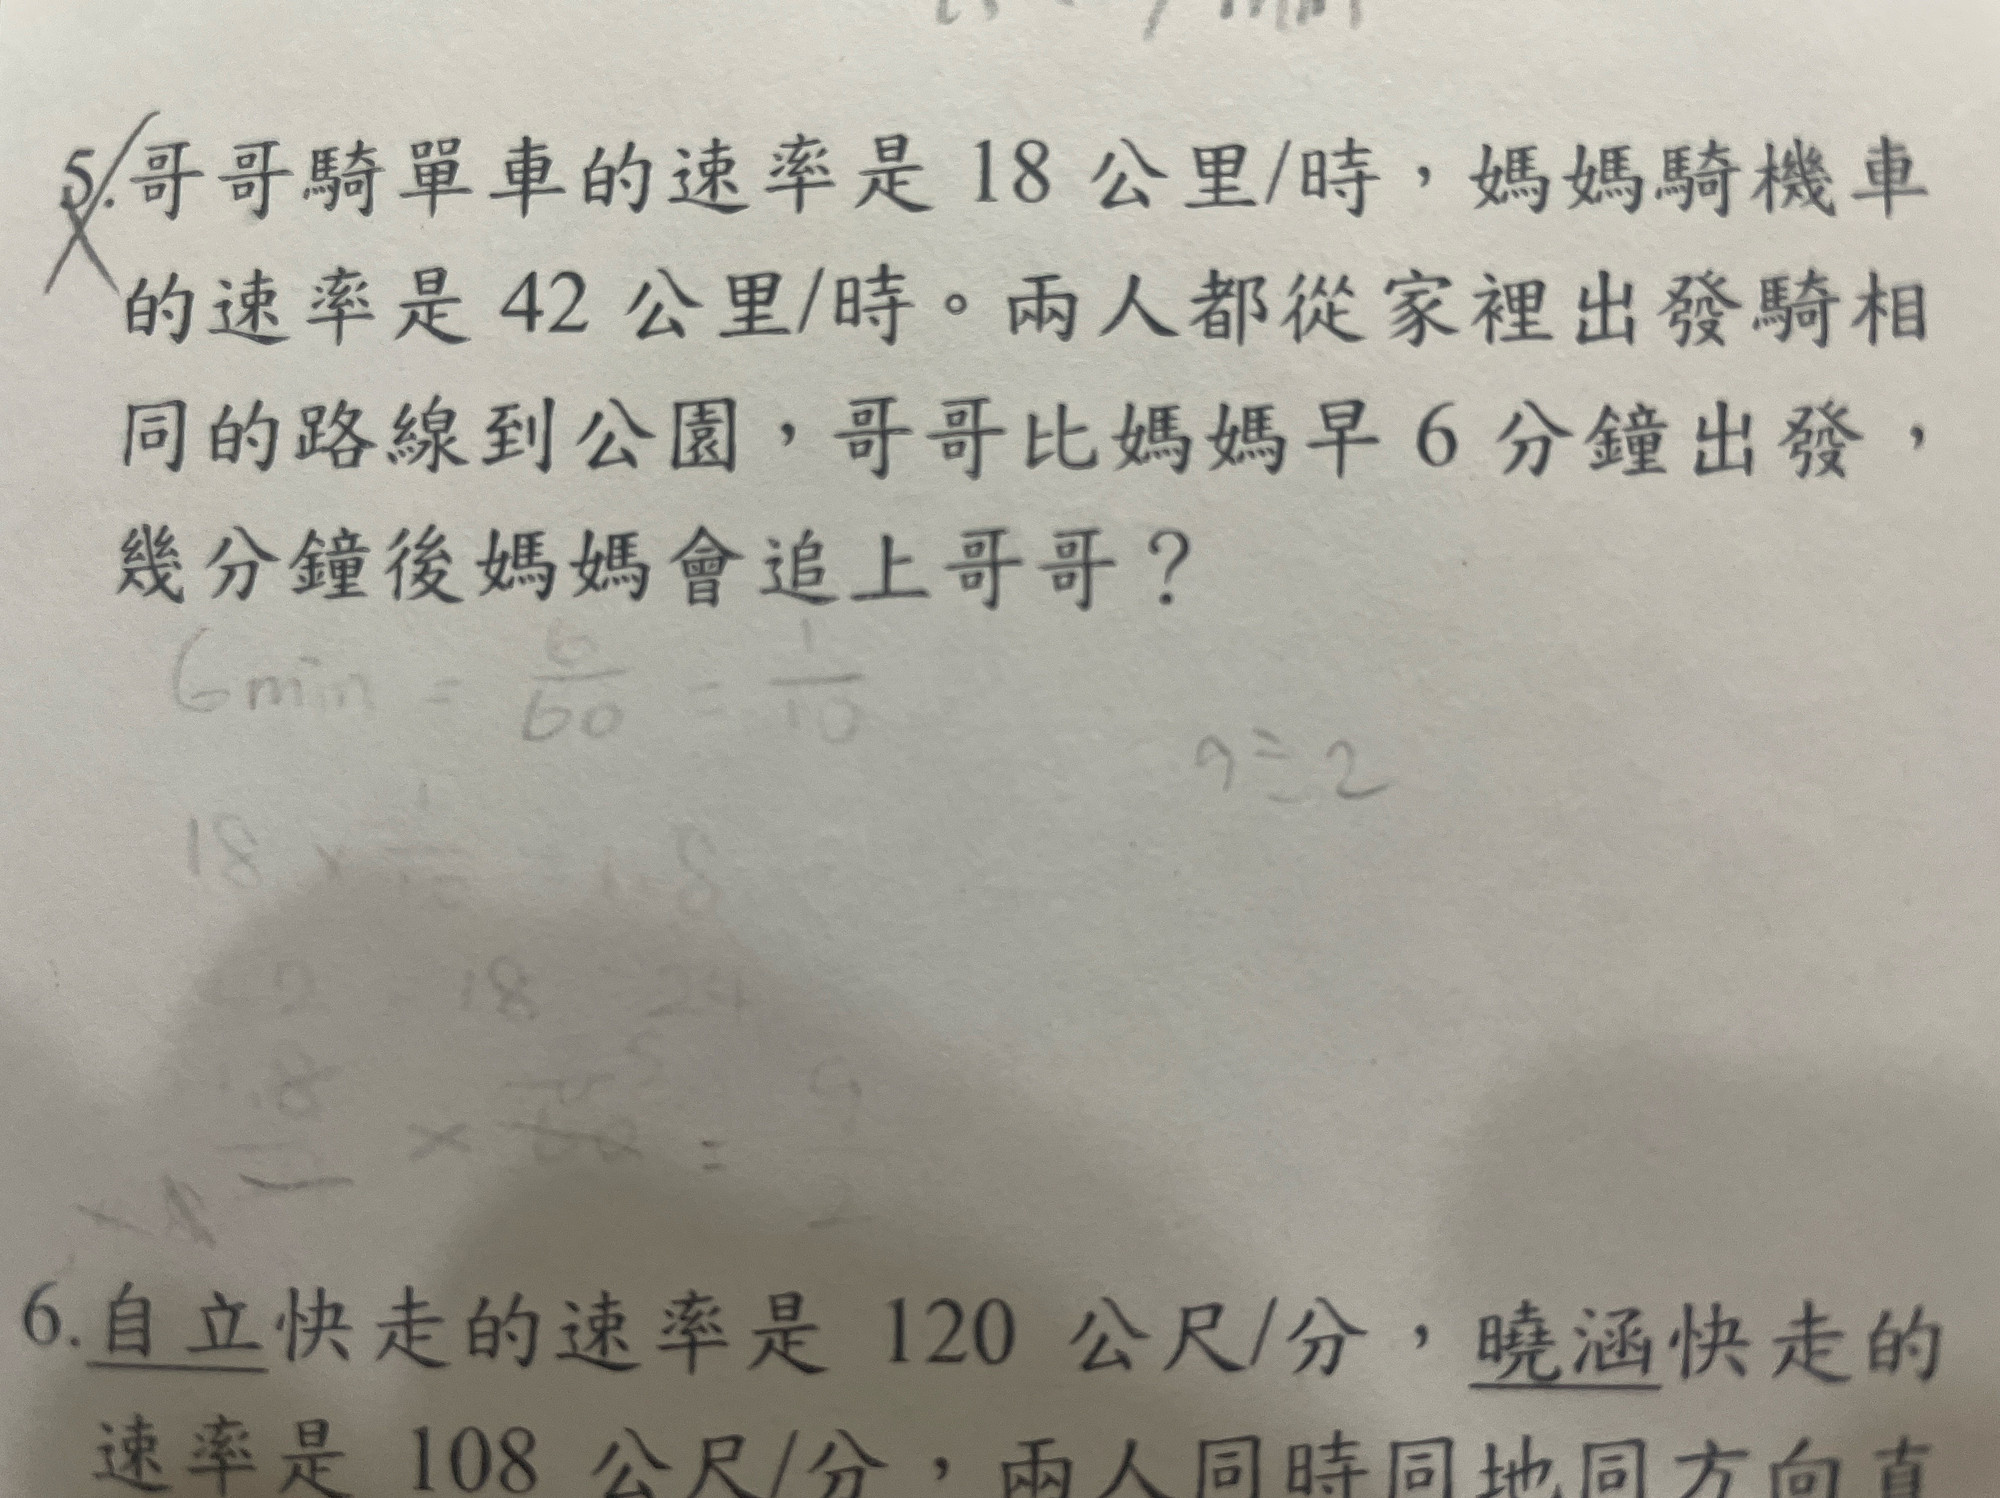 5.哥哥騎單車的速率是 18 公里/時，媽媽騎機車
的速率是 42 公里/時。兩人都從家裡出發騎相
同的路線到公園，哥哥比媽媽早 6 分鐘出發，
幾分鐘後媽媽會追上哥哥？
6min = 6/60 = 1/10
9 ÷ 2
18 ×
18 24
6.自立快走的速率是 120 公尺/分，曉涵快走的
速率是 108 公尺/分，兩人同時同地同方向直